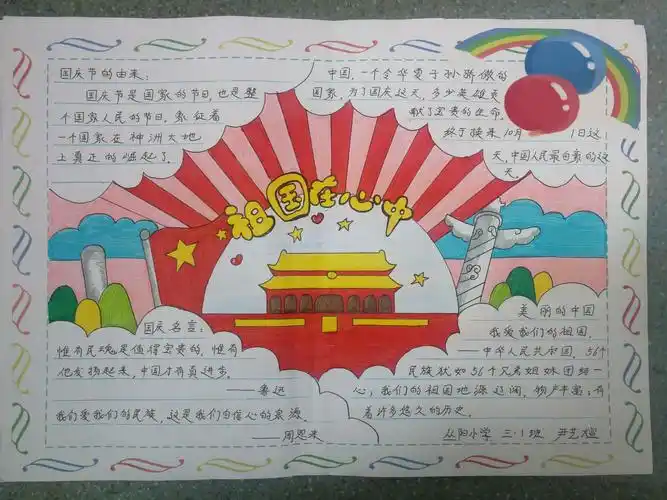 国庆节的由来:
国庆节是国家的节日,也是整
个国家人民的节日,象征着
一个国家在神洲大地
上真正的崛起了.
中国,一个令华夏子孙骄傲的
国家,为了国庆这天,多少英雄贡
献了宝贵的生命,
终于换来10月 1日这
天,中国人民最自豪的这
天.
祖国在心中
国庆名言:
惟有民魂是值得宝贵的,惟有
他发扬起来,中国才有真进步.
——鲁迅
我们爱我们的民族,这是我们自信心的泉源.
——周恩来
美丽的中国
我爱我们的祖国,
——中华人民共和国,56个
民族犹如56个兄弟姐妹团结一
心;我们的祖国地源辽阔,物产丰富;有
着许多悠久的历史.
丛阳小学 三·1班 尹艺